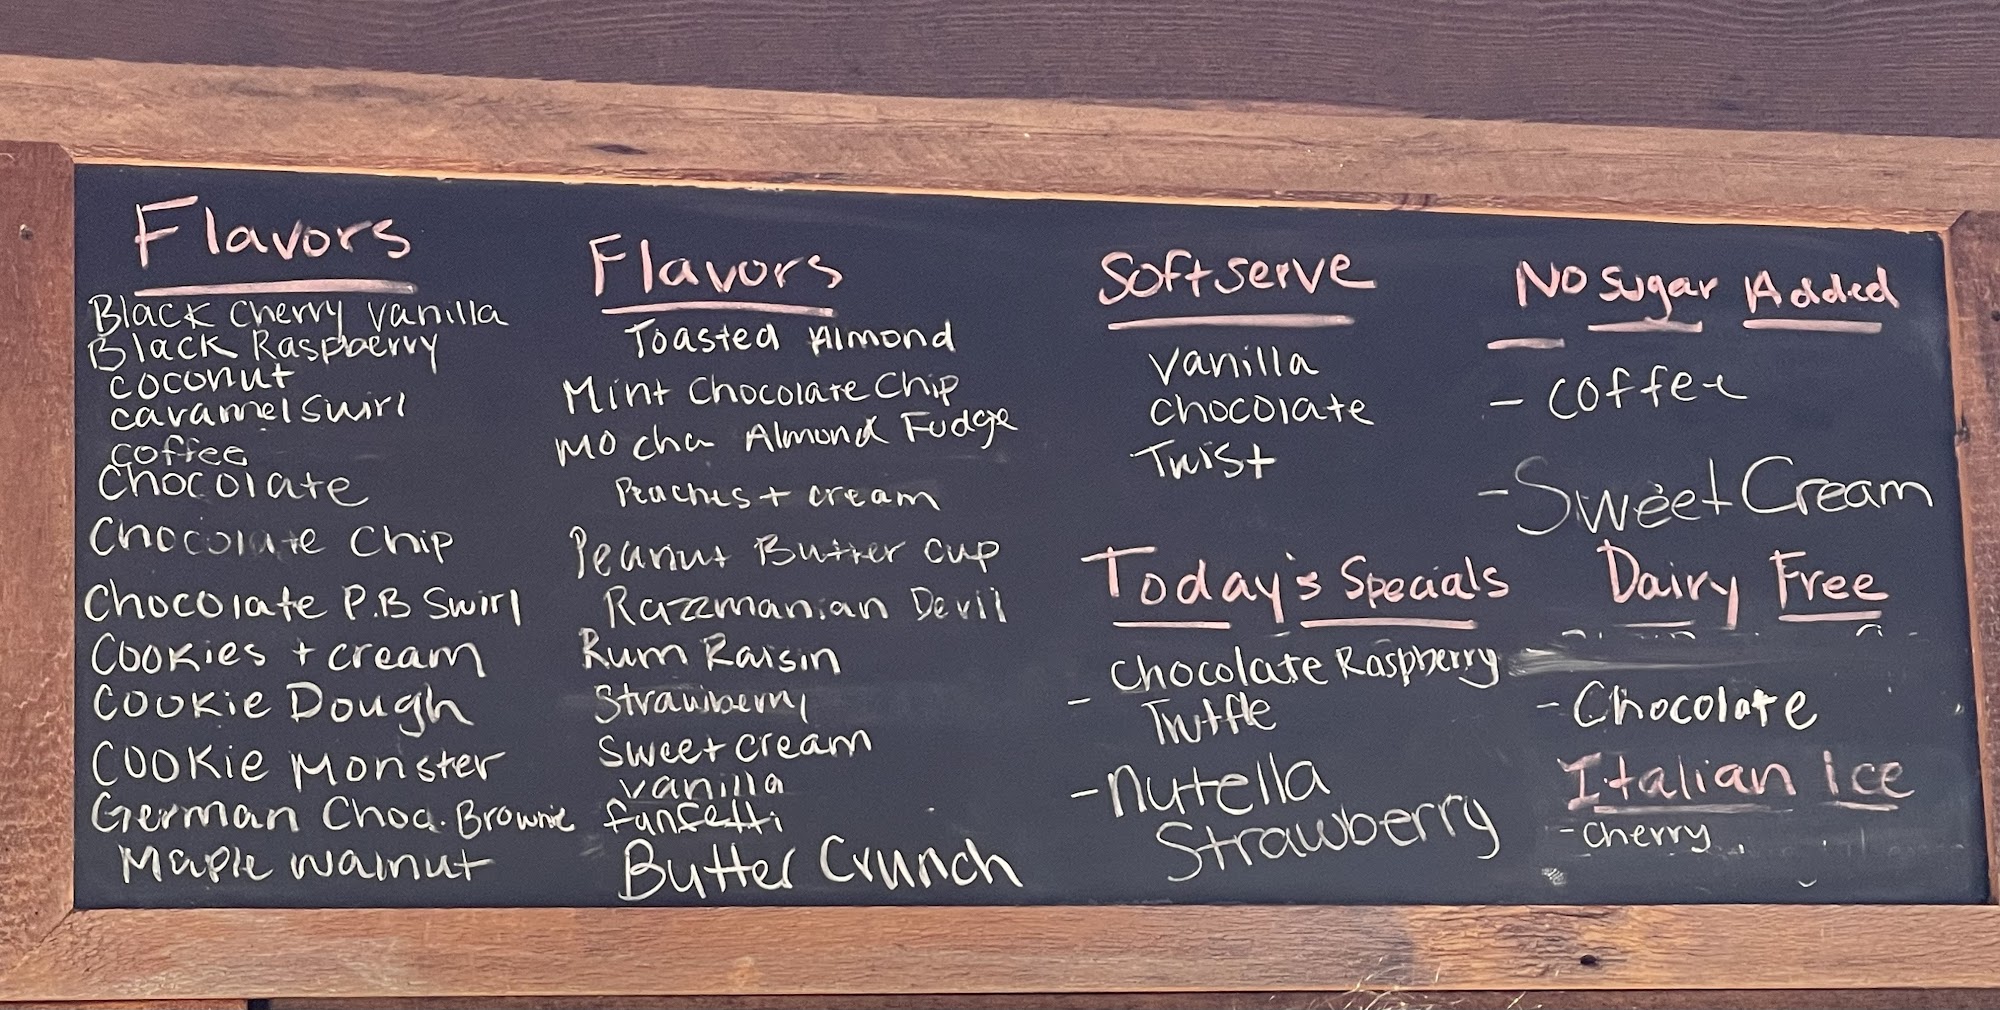 Flavors
Black Cherry Vanilla
Black Raspberry
coconut
caramel swirl
coffee
Chocolate
Chocolate Chip
Chocolate P.B Swirl
Cookies + cream
Cookie Dough
Cookie Monster
German Choc. Brownie
Maple Walnut
Flavors
Toasted Almond
Mint Chocolate Chip
Mocha Almond Fudge
Peaches + cream
Peanut Butter cup
Razzmanian Devil
Rum Raisin
Strawberry
Sweet cream
vanilla
funfetti
Butter Crunch
Softserve
Vanilla
chocolate
Twist
Today's Specials
- Chocolate Raspberry
Truffle
- Nutella
Strawberry
No Sugar Added
- coffee
- Sweet Cream
Dairy Free
- Chocolate
Italian Ice
- cherry